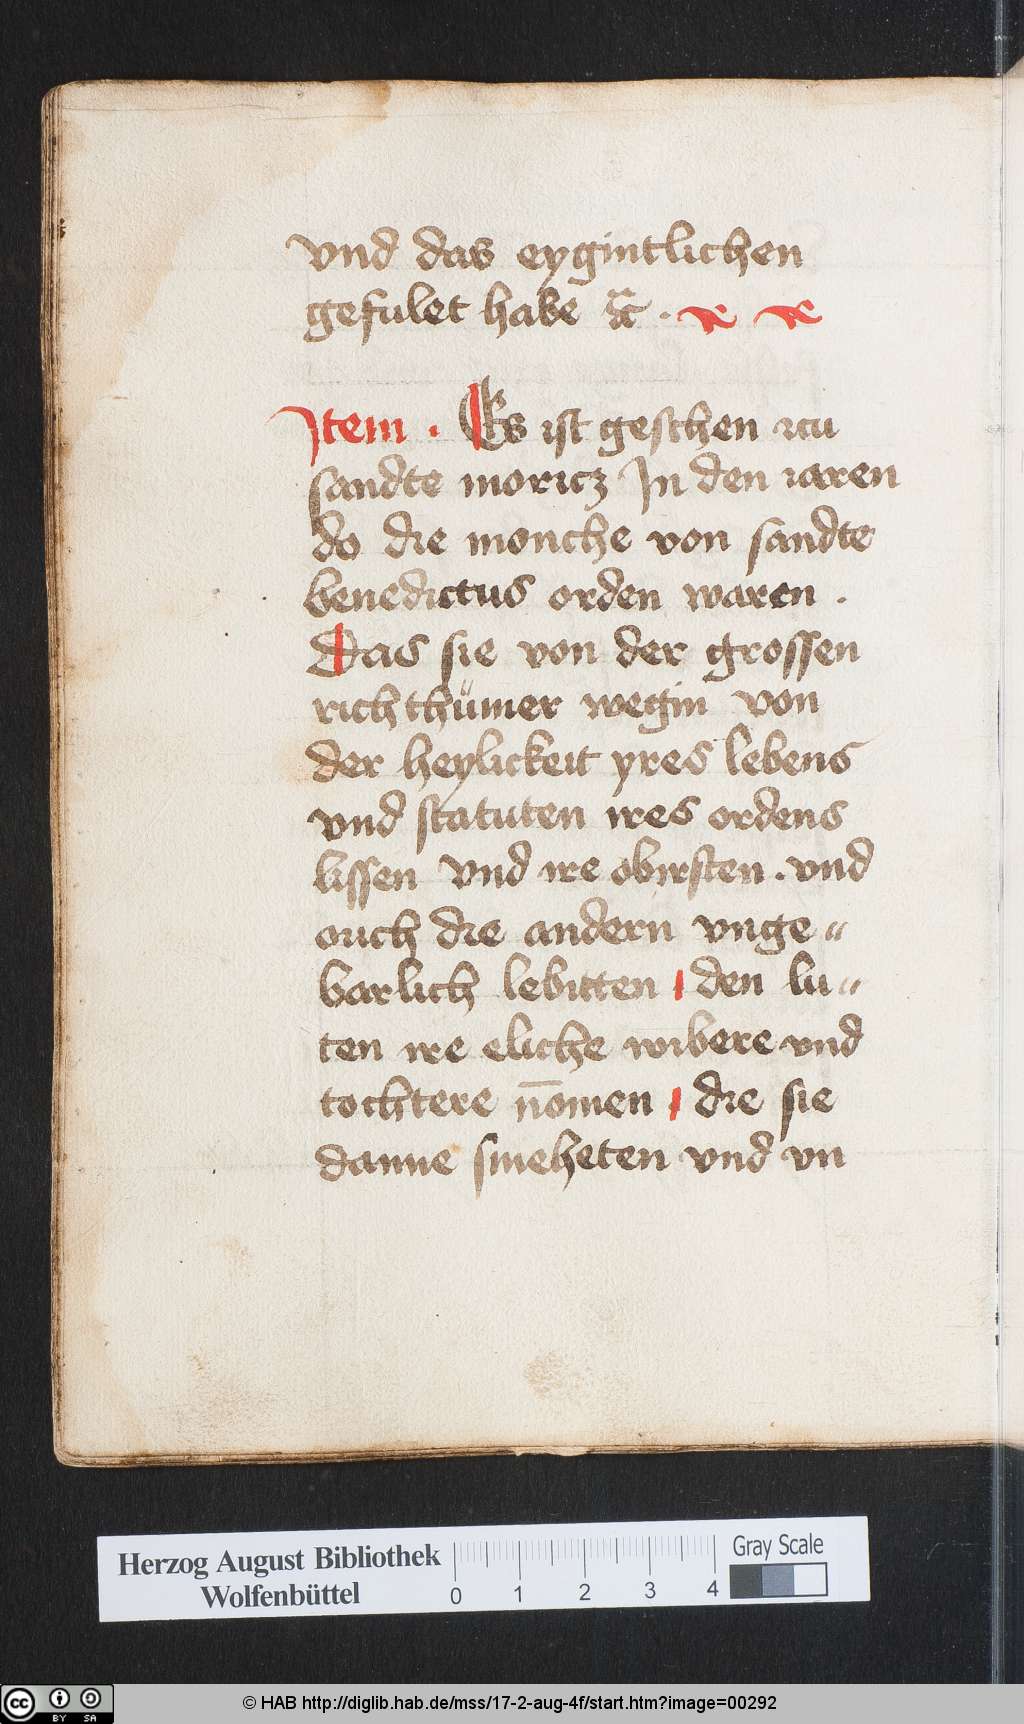 vnd das eygintlichen
gefulet habe ꝛc .
Item . Es ist geschen zcu
sandte moricz In den iaren
do die monche von sandte
benedictus orden waren .
Das sie von der grossen
richthümer wegin von
der heylickeit yres lebens
vnd statuten ires ordens
lissen vnd ire obirsten . vnd
ouch die andern vnge〃
barlich lebitten den lu〃
ten ire eliche wibere vnd
tochtere n̄omen die sie
danne smeheten vnd vn
Herzog August Bibliothek
Wolfenbüttel
0 1 2 3 4
Gray Scale
cc BY SA
© HAB http://diglib.hab.de/mss/17-2-aug-4f/start.htm?image=00292